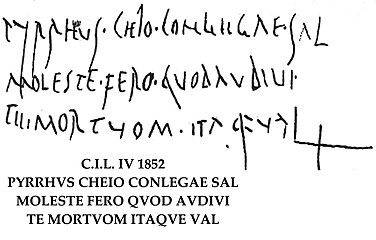 PYRRHVS · CHIO · CONLEGAE · SAL
MOLESTE · FERO · QVOD AVDIVI
TE MORTVOM · ITAQ VAL
C.I.L. IV 1852
PYRRHVS CHEIO CONLEGAE SAL
MOLESTE FERO QVOD AVDIVI
TE MORTVOM ITAQVE VAL